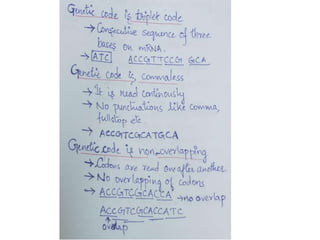 Genetic code is triplet code
→ Consecutive sequence of three
bases on mRNA.
→ ATC ACCGTTCCG GCA
Genetic code is commaless
→ It is read continously
→ No punctuations like comma,
fullstop etc.
→ ACCGTCGCATGCA
Genetic code is non-overlapping
→ Codons are read one after another.
→ No overlapping of codons
→ ACCGTCGCACCA → no overlap
ACCGTCGCACCATC
overlap